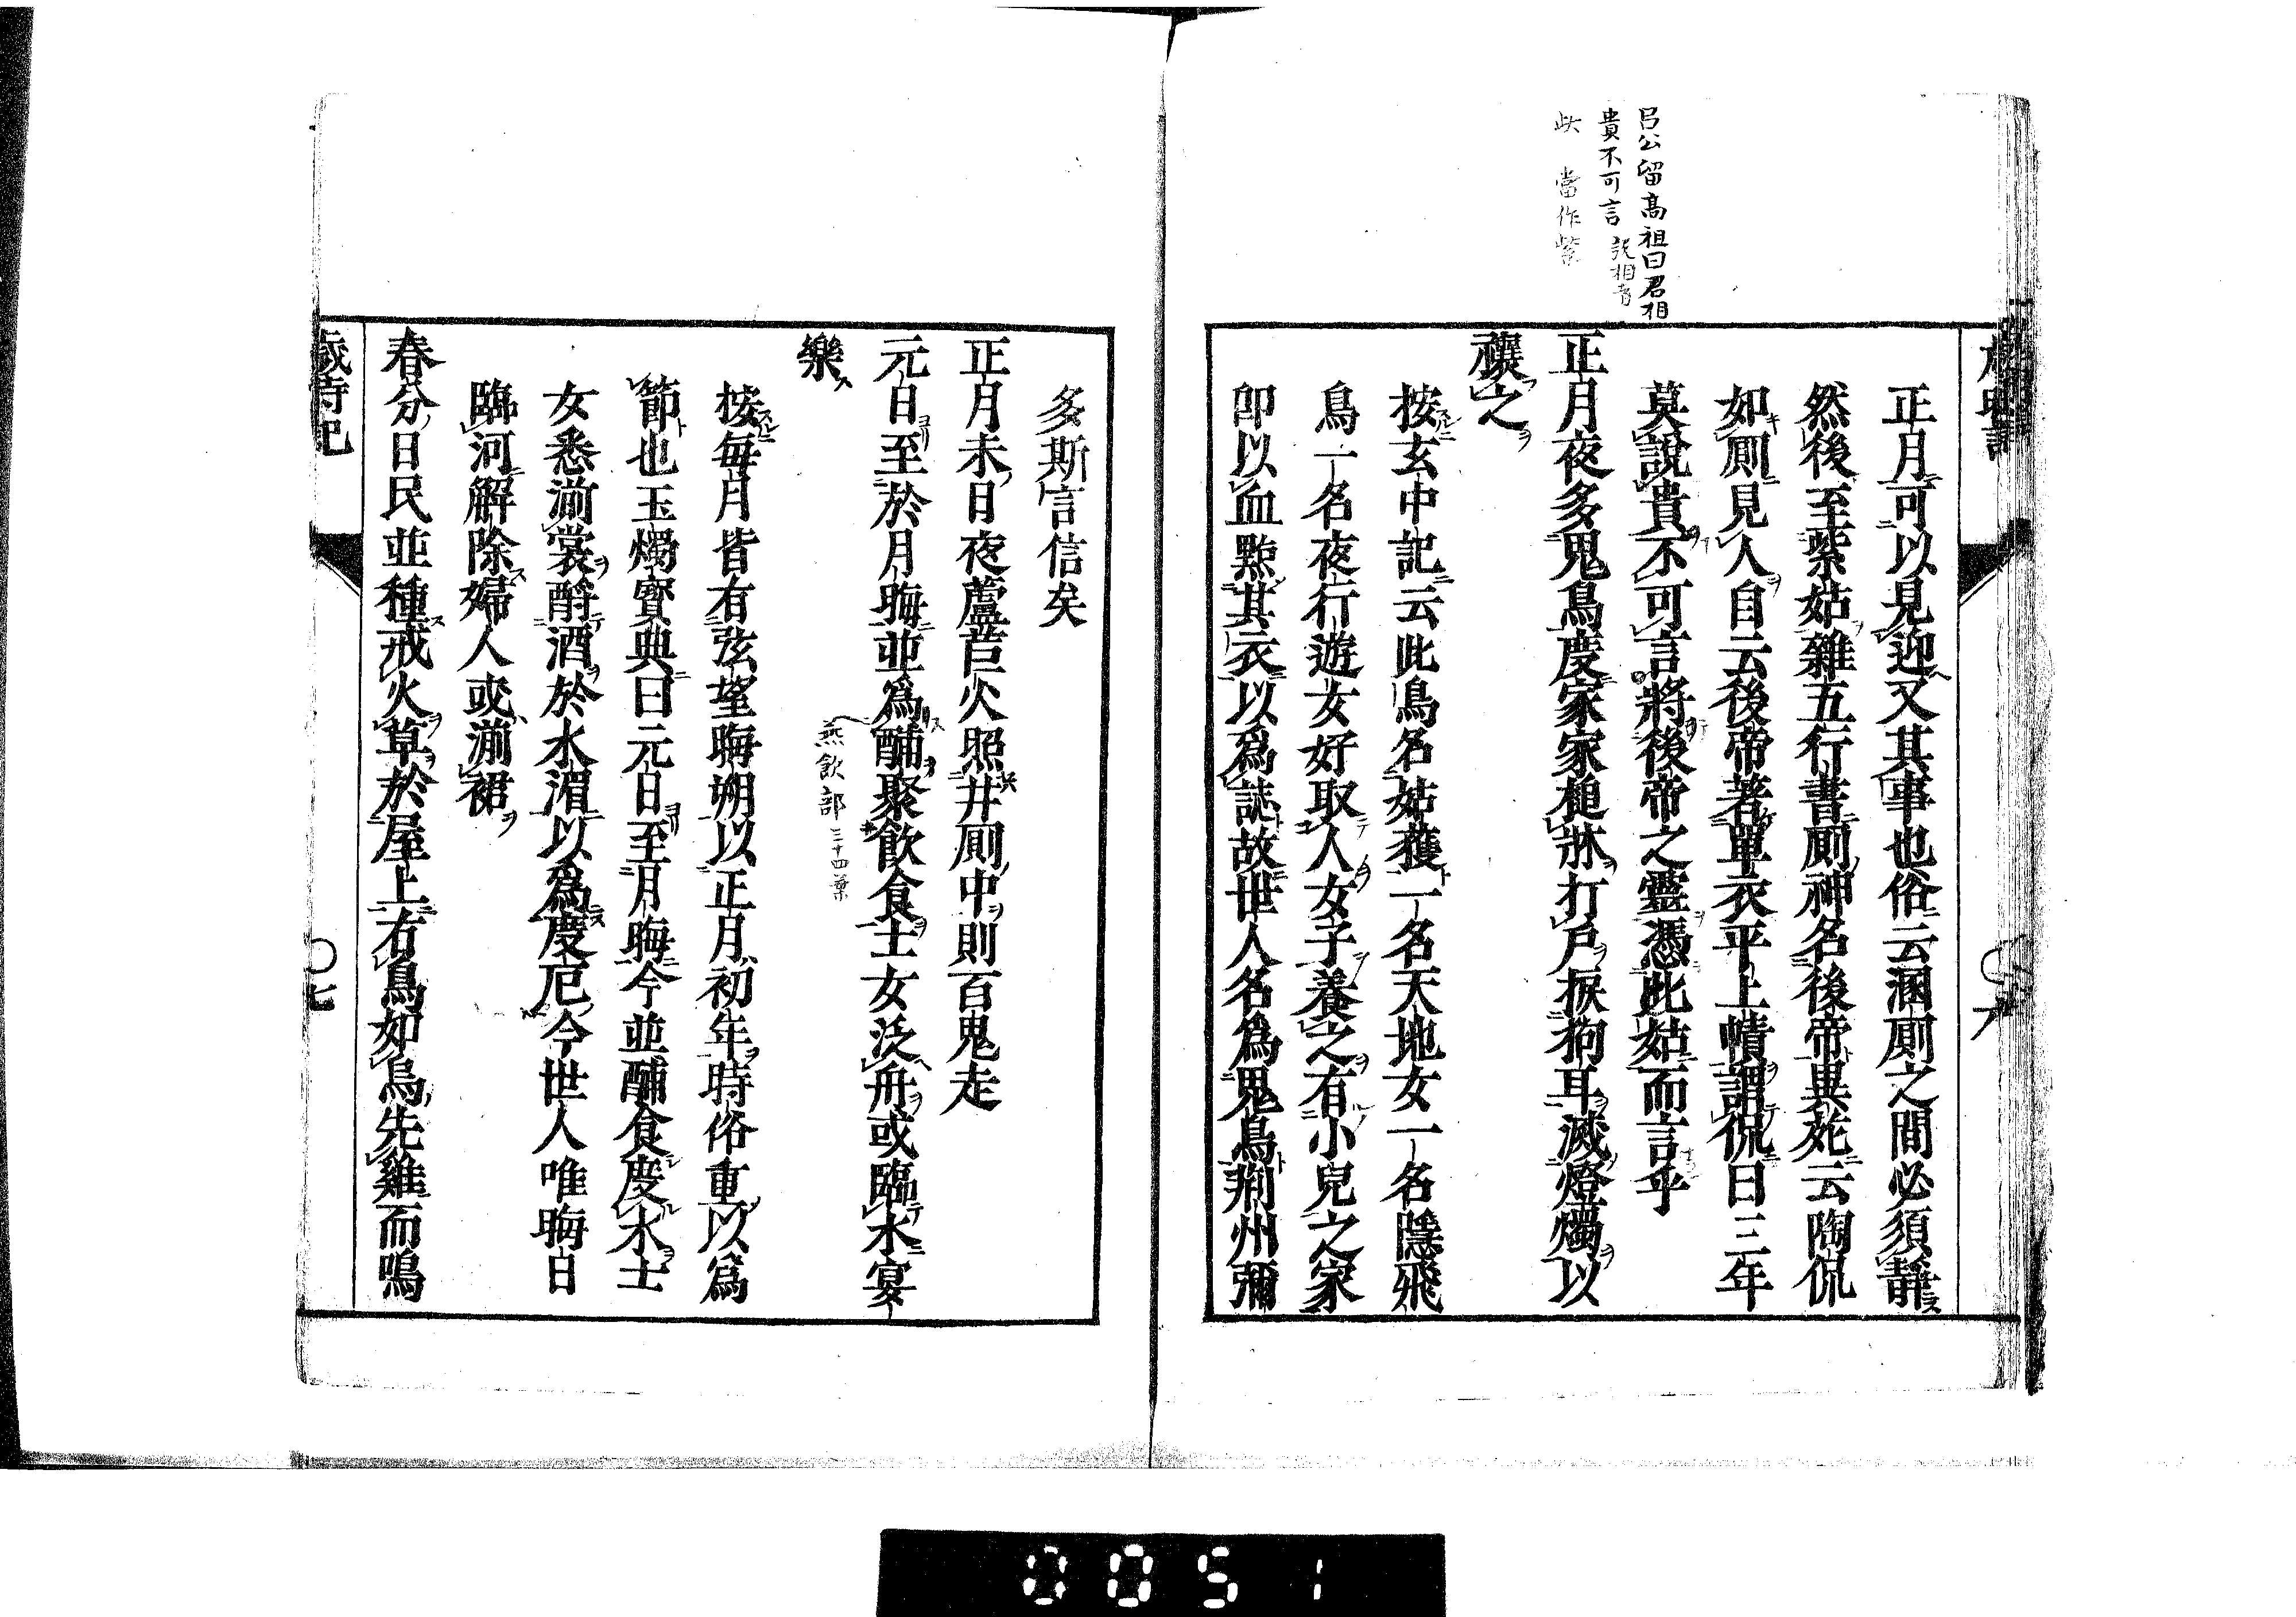 呂公留高祖曰君相
貴不可言
此 當作紫
正月可以見迎又其事也俗云溷厠之間必須靜
然後至紫姑雜五行書厠神名後帝異死云陶侃
如厠見人自云後帝著單衣平上幘謂侃曰三年
莫說貴不可言將後帝之靈憑此姑而言乎
正月夜多鬼鳥度家家槌牀打戶捩狗耳滅燈燭以
禳之
按玄中記云此鳥名姑獲一名天地女一名隱飛
鳥一名夜行遊女好取人女子養之有小兒之家
卽以血點其衣以爲誌故世人名爲鬼鳥荊州彌
多斯言信矣
正月未日夜蘆苣火照井厠中則百鬼走
元日至於月晦並爲酺聚飮食士女泛舟或臨水宴
樂
燕飲部三十四葉
按每月皆有弦望晦朔以正月初年時俗重以爲
節也玉燭寶典曰元日至月晦今並酺食度水士
女悉湔裳酹酒於水湄以爲度厄今世人唯晦日
臨河解除婦人或湔裙
春分日民並種戒火草於屋上有鳥如烏先雞而鳴
歲時記
〇七
0051